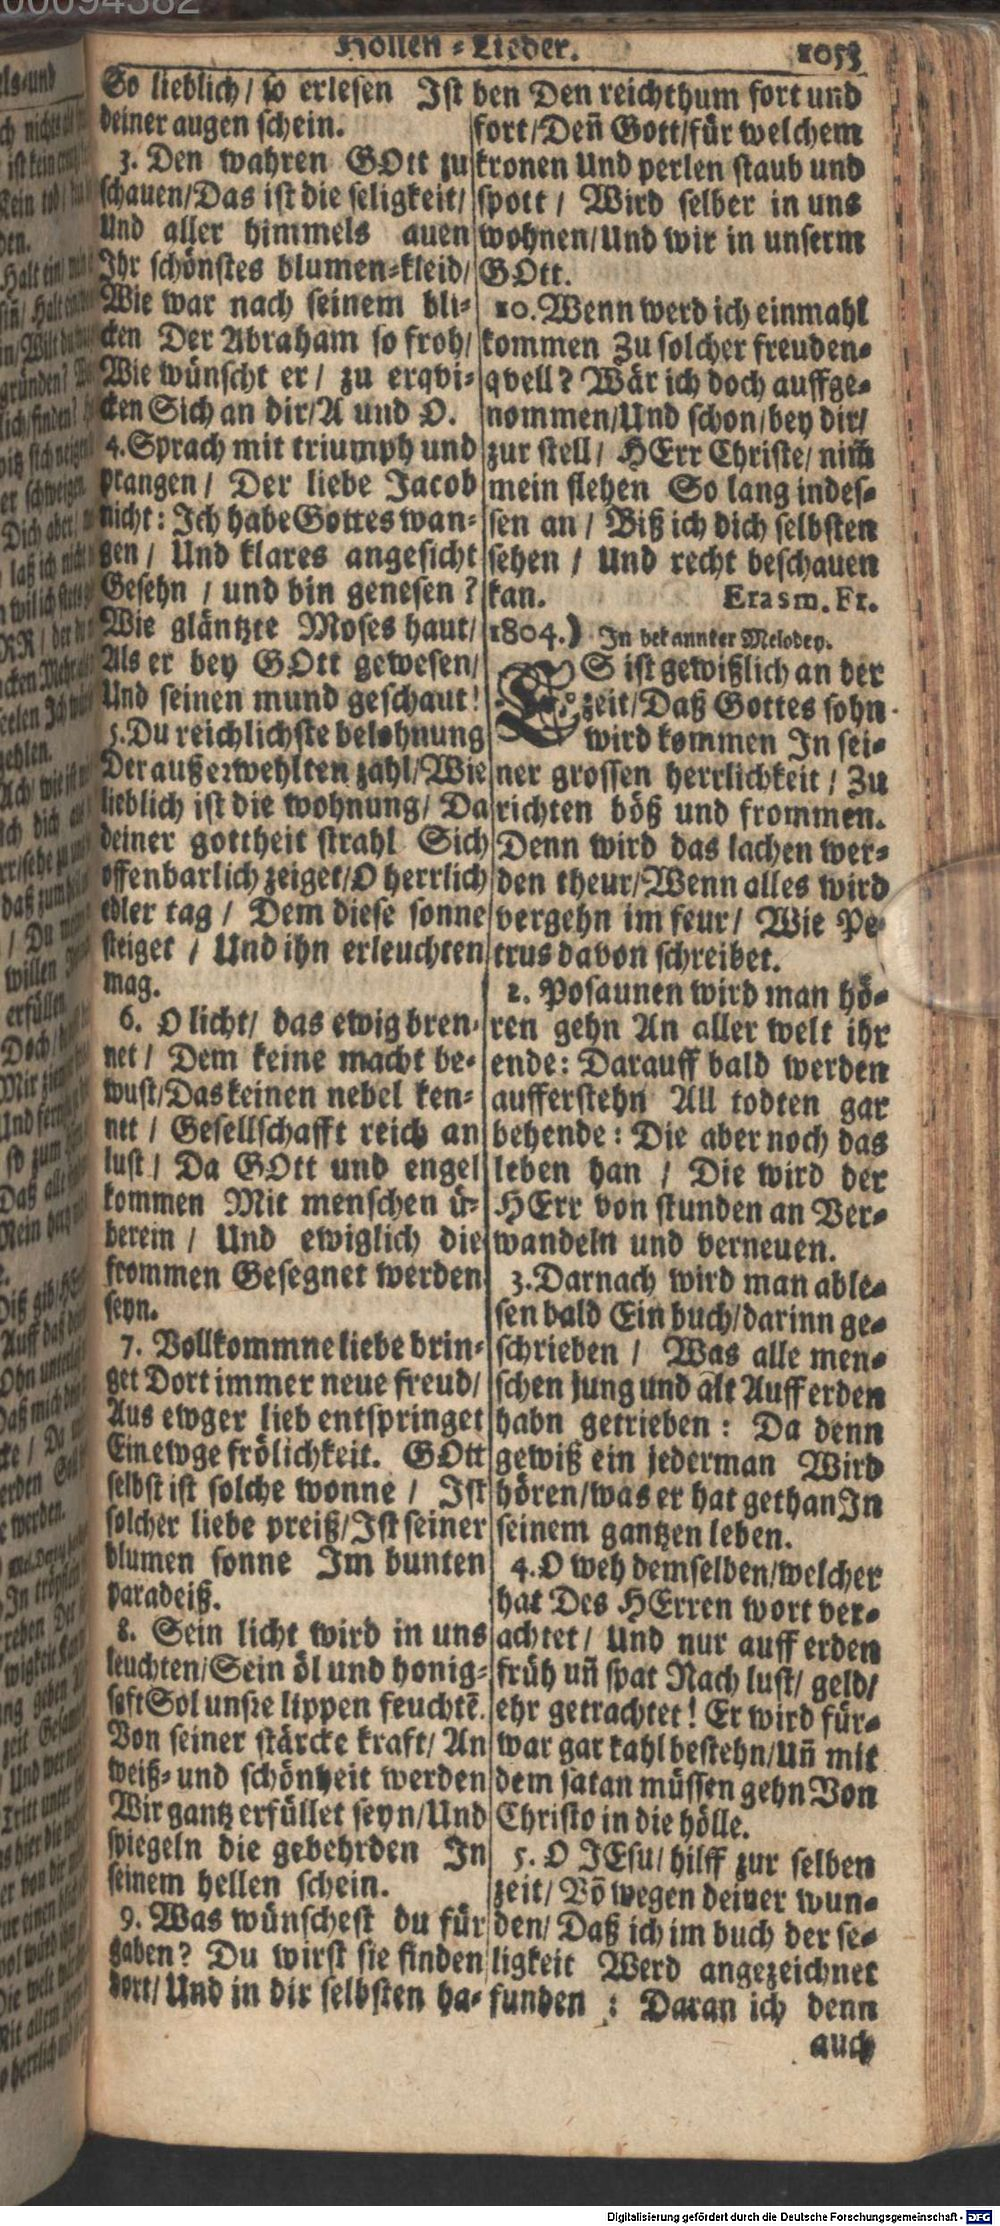 00094382
Höllen-Lieder. 1053
So lieblich/ so erlesen Ist
deiner augen schein.
3. Den wahren GOtt zu
schauen/Das ist die seligkeit/
Und aller himmels auen
Ihr schönstes blumen-kleid/
Wie war nach seinem bli-
cken Der Abraham so froh/
Wie wünscht er/ zu erqvi-
cken Sich an dir/A und O.
4. Sprach mit triumph und
prangen/ Der liebe Jacob
nicht: Ich habe Gottes wan-
gen/ Und klares angesicht
Gesehn/ und bin genesen?
Wie gläntzte Moses haut/
Als er bey GOtt gewesen/
Und seinen mund geschaut!
5. Du reichlichste belohnung
Der außerwehlten zahl/Wie
lieblich ist die wohnung/ Da
deiner gottheit strahl Sich
offenbarlich zeiget/O herrlich
edler tag/ Dem diese sonne
steiget/ Und ihn erleuchten
mag.
6. O licht/ das ewig bren-
net/ Dem keine macht be-
wust/Das keinen nebel ken-
net/ Gesellschafft reich an
lust/ Da GOtt und engel
kommen Mit menschen ü-
berein/ Und ewiglich die
frommen Gesegnet werden
seyn.
7. Vollkommne liebe brin-
get Dort immer neue freud/
Aus ewger lieb entspringet
Ein ewge frölichkeit. GOtt
selbst ist solche wonne/ Ist
solcher liebe preiß/Ist seiner
blumen sonne Im bunten
paradeiß.
8. Sein licht wird in uns
leuchten/Sein öl und honig-
saft Sol unsre lippen feuchtē.
Von seiner stärcke kraft/ An
weiß- und schönheit werden
Wir gantz erfüllet seyn/Und
spiegeln die gebehrden In
seinem hellen schein.
9. Was wünschest du für
gaben? Du wirst sie finden
dort/Und in dir selbsten ha-
ben Den reichthum fort und
fort/Deñ Gott/für welchem
kronen Und perlen staub und
spott/ Wird selber in uns
wohnen/Und wir in unserm
GOtt.
10. Wenn werd ich einmahl
kommen Zu solcher freuden-
qvell? Wär ich doch auffge-
nommen/Und schon/bey dir/
zur stell/ HErr Christe/ nim̄
mein flehen So lang indes-
sen an/ Biß ich dich selbsten
sehen/ Und recht beschauen
kan. Erasm. Fr.
1804.) In bekannter Melodey.
ES ist gewißlich an der
zeit/Daß Gottes sohn
wird kommen In sei-
ner grossen herrlichkeit/ Zu
richten böß und frommen.
Denn wird das lachen wer-
den theur/Wenn alles wird
vergehn im feur/ Wie Pe-
trus davon schreibet.
2. Posaunen wird man hö-
ren gehn An aller welt ihr
ende: Darauff bald werden
aufferstehn All todten gar
behende: Die aber noch das
leben han/ Die wird der
HErr von stunden an Ver-
wandeln und verneuen.
3. Darnach wird man able-
sen bald Ein buch/darinn ge-
schrieben/ Was alle men-
schen jung und alt Auff erden
habn getrieben: Da denn
gewiß ein jederman Wird
hören/was er hat gethan In
seinem gantzen leben.
4. O weh demselben/welcher
hat Des HErren wort ver-
achtet/ Und nur auff erden
früh uñ spat Nach lust/ geld/
ehr getrachtet! Er wird für-
war gar kahl bestehn/Uñ mit
dem satan müssen gehn Von
Christo in die hölle.
5. O JEsu/ hilff zur selben
zeit/ Vō wegen deiner wun-
den/ Daß ich im buch der se-
ligkeit Werd angezeichnet
funden: Daran ich denn
auch
Digitalisierung gefördert durch die Deutsche Forschungsgemeinschaft - DFG